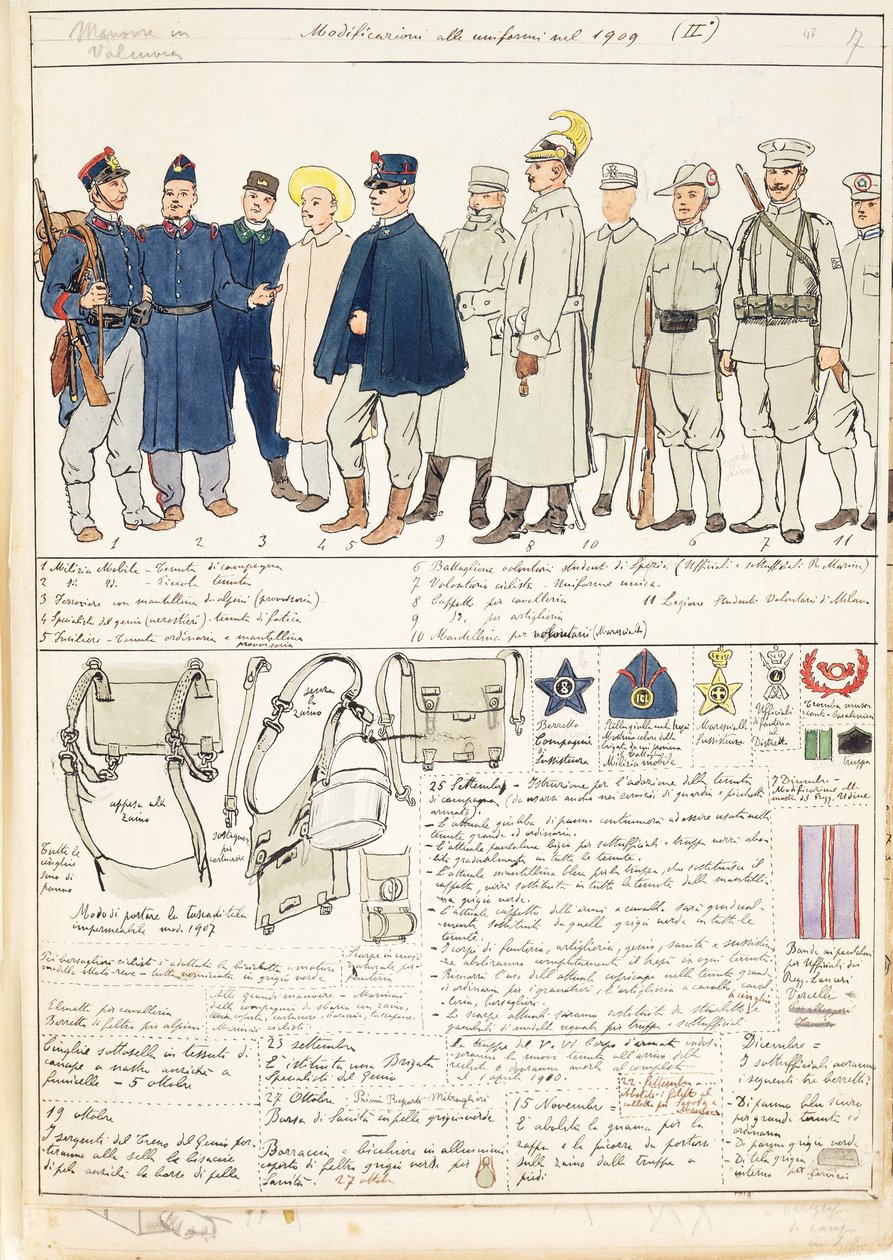 Manovre in
Valcuvia
Modificazioni alle uniformi nel 1909 (II°)
47
17
1
2
3
4
5
9
8
10
6
7
11
1 Milizia Mobile - Tenuta di campagna
2 id. id. - Piccola tenuta
3 Ferroviere con mantellina da alpini (provvisoria)
4 Specialista del genio (aerostieri) - tenuta di fatica
5 Fuciliere - Tenuta ordinaria e mantellina
provvisoria
6 Battaglione volontari studenti di Spezia (Ufficiali e sottufficiali R. Marina)
7 Volontario ciclista - Uniforme unica.
8 Cappotto per cavalleria
9 Id. per artiglieria
10 Mantellina per volontari (Marescialli)
11 Legione Studenti Volontari di Milano
senza
lo
zaino
apposta allo
zaino
sostegno
per
cartucciere
Tutte le
cinghie
sono di
panno
Modo di portare la tasca di tela
impermeabile mod. 1907
8
2
Berretto
Compagnie
di
Sussistenza
Milizia mobile
Marescialli
Sussistenza
Ufficiali
di fanteria
ai
Distretti
truppa
25 Settembre - Istruzione per l'adozione della tenuta
di campagna (da usarsi anche nei servizi di guardia e picchetti
armati).
- L'attuale giubba di panno continuerà ad essere usata nelle
tenute grande ed ordinaria.
- L'attuale pantalone bigio per sottufficiali e truppa verrà abo-
lito gradualmente in tutte le tenute.
- L'attuale mantellina bleu per la truppa, che sostituisce il
cappotto, verrà sostituita in tutte le tenute dalla mantelli-
na grigio verde.
- L'attuale cappotto dell'armi a cavallo sarà gradual-
mente sostituito da quello grigio verde in tutte le
tenute.
- I corpi di fanteria, artiglieria, genio, sanità e sussisten-
za aboliranno completamente il kepì in ogni tenuta.
- Rimarrà l'uso dell'attuale copricapo nelle tenute grande
ed ordinaria per i granatieri, l'artiglieria a cavallo, caval-
leria, bersaglieri.
- Le scarpe attuali saranno sostituite da stivaletti e
gambali di modello uguale per truppa e sottufficiali.
Le truppe del V e VI Corpo d'armata indos-
seranno la nuova tenuta all'arrivo delle
reclute e dovranno averla al completo
al 1 aprile 1910.
7 Dicembre -
Modificazione alle
Bande ai pantaloni
per Ufficiali dei
Regg. Lancieri
Vercelli
Ai bersaglieri ciclisti è adottata la bicicletta a motore
tutta verniciata in grigio verde
Scarpe in cuoio
naturale per
fanteria
Elmetto per cavalleria
Berretto di feltro per alpini
Alle Grandi manovre -
Cinghie sottosella in tessuto di
canape a nastro anziché a
funicelle - 5 ottobre
23 settembre
È istituita una Brigata
Specialisti del Genio
19 ottobre
I sergenti del Treno del Genio por-
teranno alla sella le bisacce
di pelo anziché la borse di pelle
27 Ottobre: Primi Reparti Mitraglieri
Borsa di Sanità in pelle grigioverde
Borraccia e bicchiere in alluminio
coperto di feltro grigio verde per
Sanità. 27 ottobre
15 Novembre =
È abolita la guaina per la
zappa e la piccozza da portarsi
sullo zaino dalla truppa a
piedi
22 Settembre
Dicembre =
I sottufficiali avranno
i seguenti tre berretti:
- Di panno blu scuro
per grande tenuta ed
ordinaria
- Di panno grigio verde
- Di tela grigia per
interno Servizi